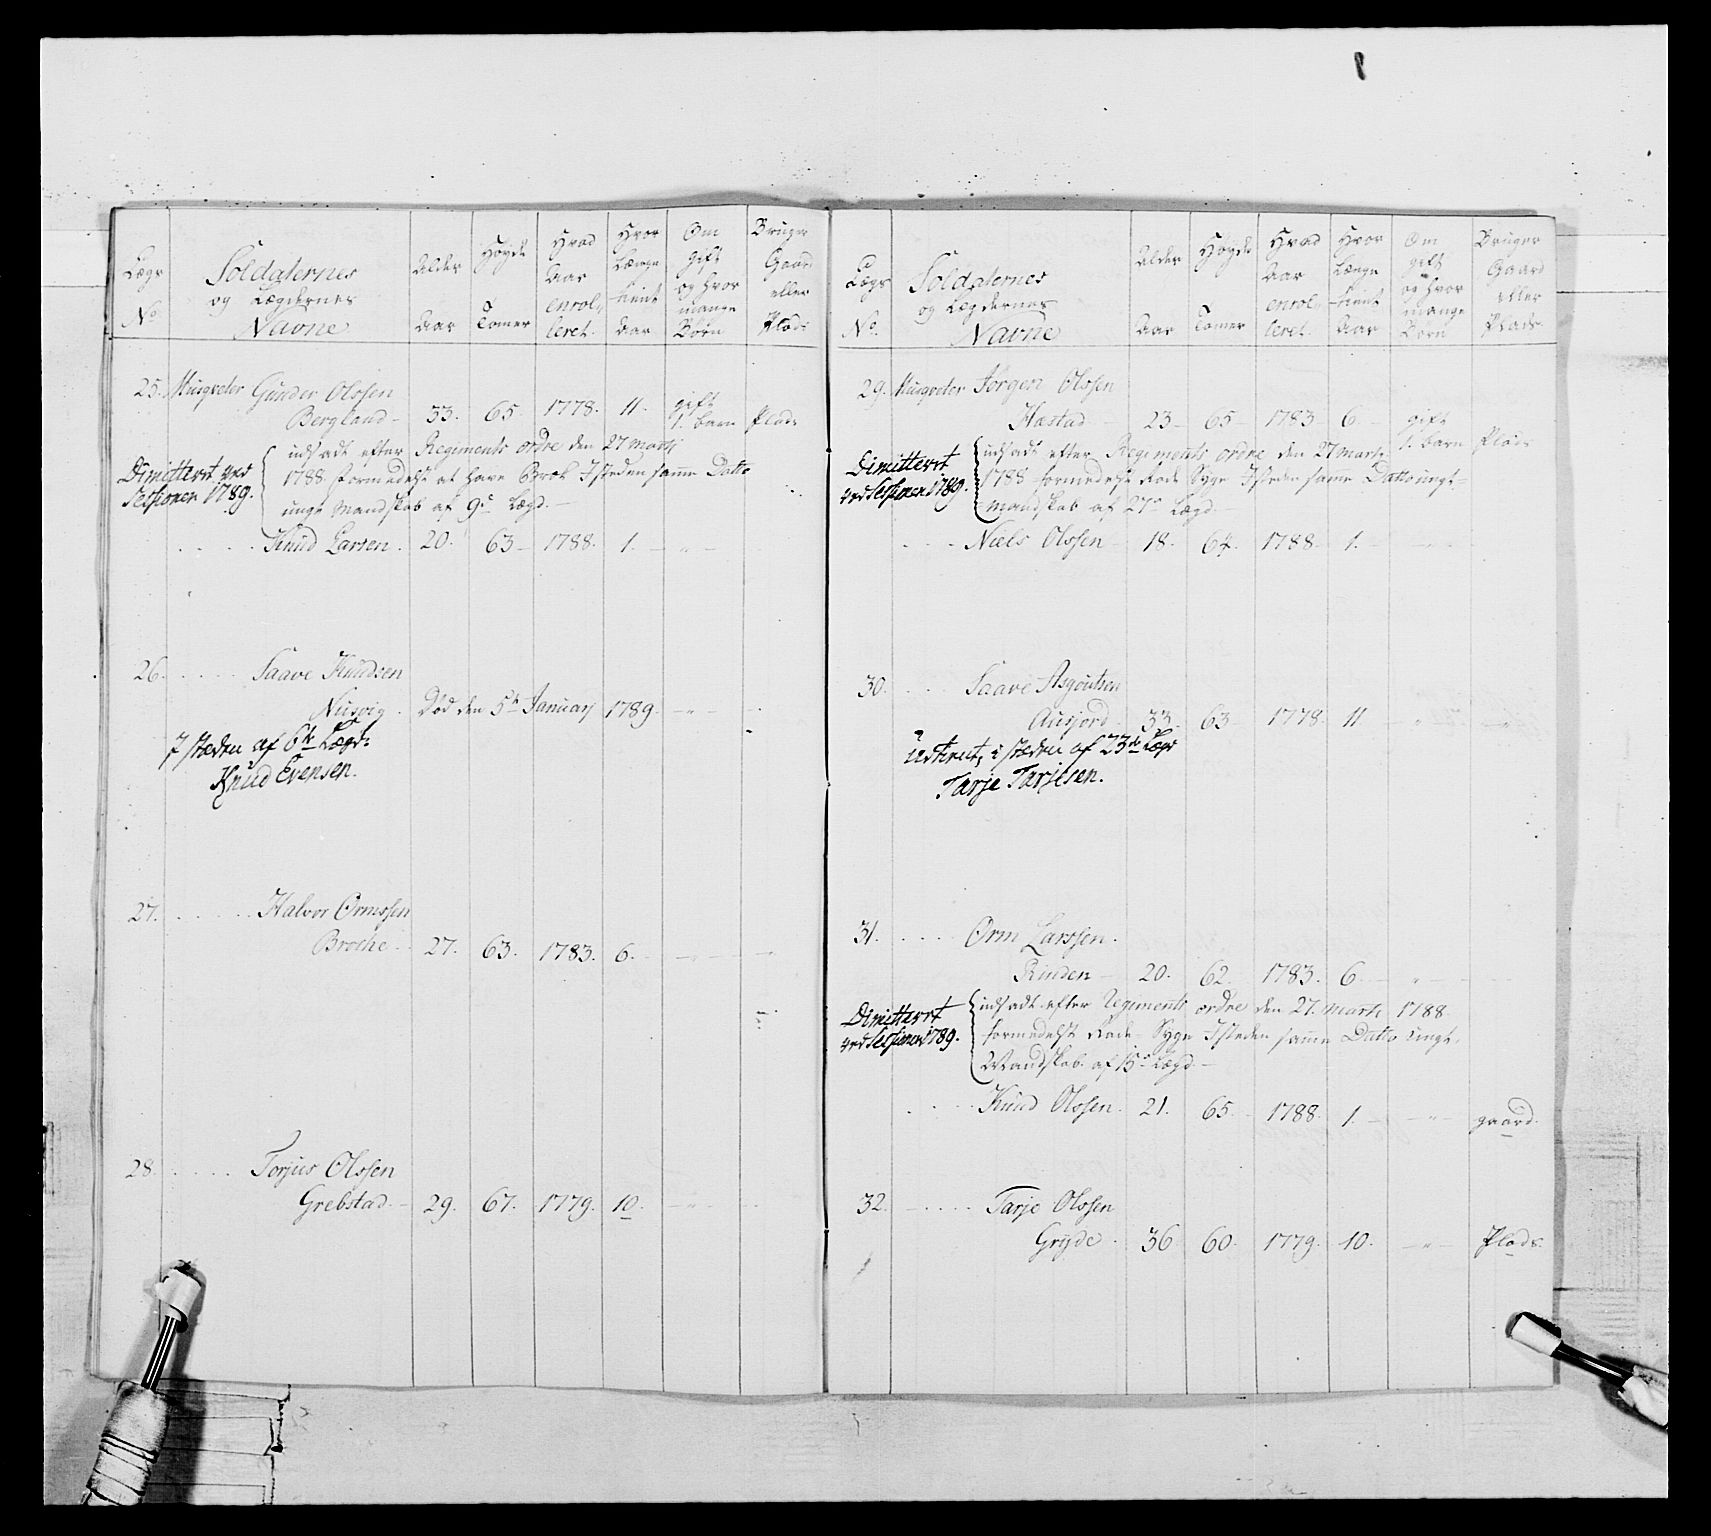 Lægs No | Soldaternes og Lægdernes Navne | Alder Aar | Høyde Tomer | Hvad Aar enrolleret | Hvor Længe tient Aar | Om gift og hvor mange Børn | Bruger Gaard eller Plads
25. Musqveter Gunder Olssen
Bergland - 33. 65. 1778. 11. gift 1. barn Plads
udsadt efter Regiments ordre den 27 Marti
1788 formedelst at have Brok I steden samme Datto
unge Mandskab af 9de Lægd. -
Dimitteret ved
Sessionen 1789.
Knud Larsen. 20. 63 - 1788. 1. - " -
26. Saave Knudsen
Død den 5te January 1789. - " -
I stæden af 6te Lægd:
Knud Evensen.
27. Halvor Ormssen
Broche. 27. 63. 1783. 6. - " -
28. Torjus Olssen
Grebstad. - 29. 67. 1779. 10. - " -
Lægs No. | Soldaternes og Lægdernes Navne | Alder Aar | Høyde Tomer | Hvad Aar enrolleret | Hvor Længe tient Aar | Om gift og hvor mange Børn | Bruger Gaard eller Plads
29. Musqveter Jørgen Olssen
Hastad - 23 - 65 - 1783 - 6. - gift 1. barn Plads
udsadt efter Regiments ordre den 27 Marti
1788 formedelst Rade Syge I steden samme Datto ungt-
mandskab af 27de Lægd. -
Dimitteret
ved Sessionen 1789.
Niels Olssen - 18. 64. 1788. 1. - " -
30. Saave Asgoutsen
Ausjord. 33. 63 - 1778. 11 - " -
Udtient, i stæden af 23de Lægd
Tarje Tarjesen.
31. Orm Larssen.
Rinden - 20. 62. 1783. 6. - " -
udsadt efter Regiments ordre den 27. Marti 1788.
formedelst Rade - Syge I steden samme Datto ungt-
Mandskab af 15de Lægd. -
Dimitteret
ved Sessionen 1789.
Knud Olssen. 21. 65. 1788. 1. - " - gaard.
32. Tarje Olssen
Gryde. 36 60. 1779. 10. - " - Plads.